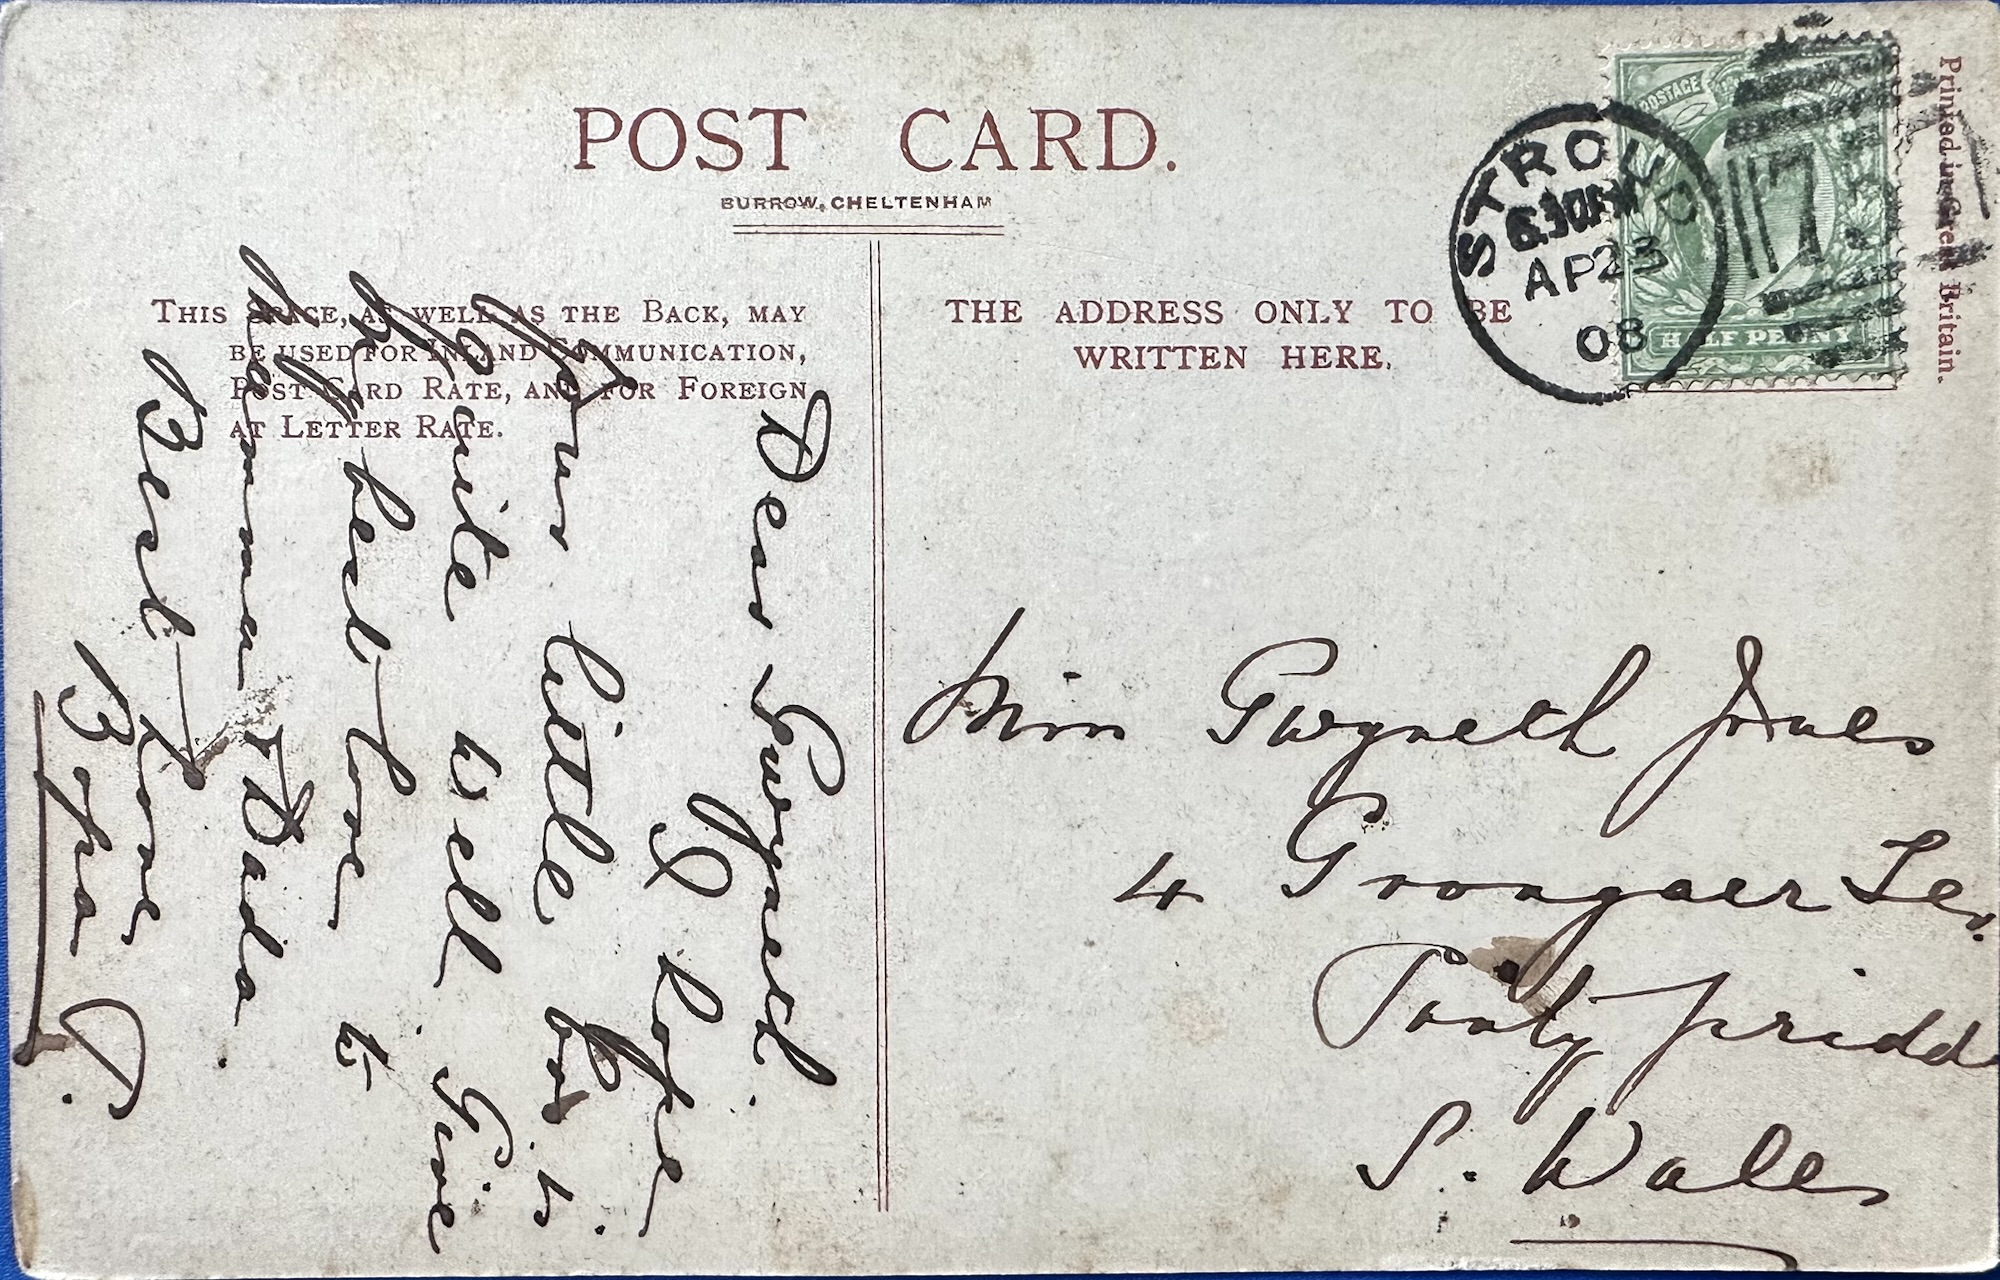 POST CARD.
BURROW, CHELTENHAM
THIS SPACE, AS WELL AS THE BACK, MAY
BE USED FOR INLAND COMMUNICATION,
POST CARD RATE, AND FOR FOREIGN
AT LETTER RATE.
THE ADDRESS ONLY TO BE
WRITTEN HERE.
STROUD
6.30PM
AP 23
08
POSTAGE
HALF PENNY
Printed in Great Britain.
Dear Gwyneth.
I hope
Your little
quite well. Give
my best love to
Mamma & Dada.
Best love
Miss Gwyneth Jones
4 Grongaer Ter.
Pontypridd
S. Wales